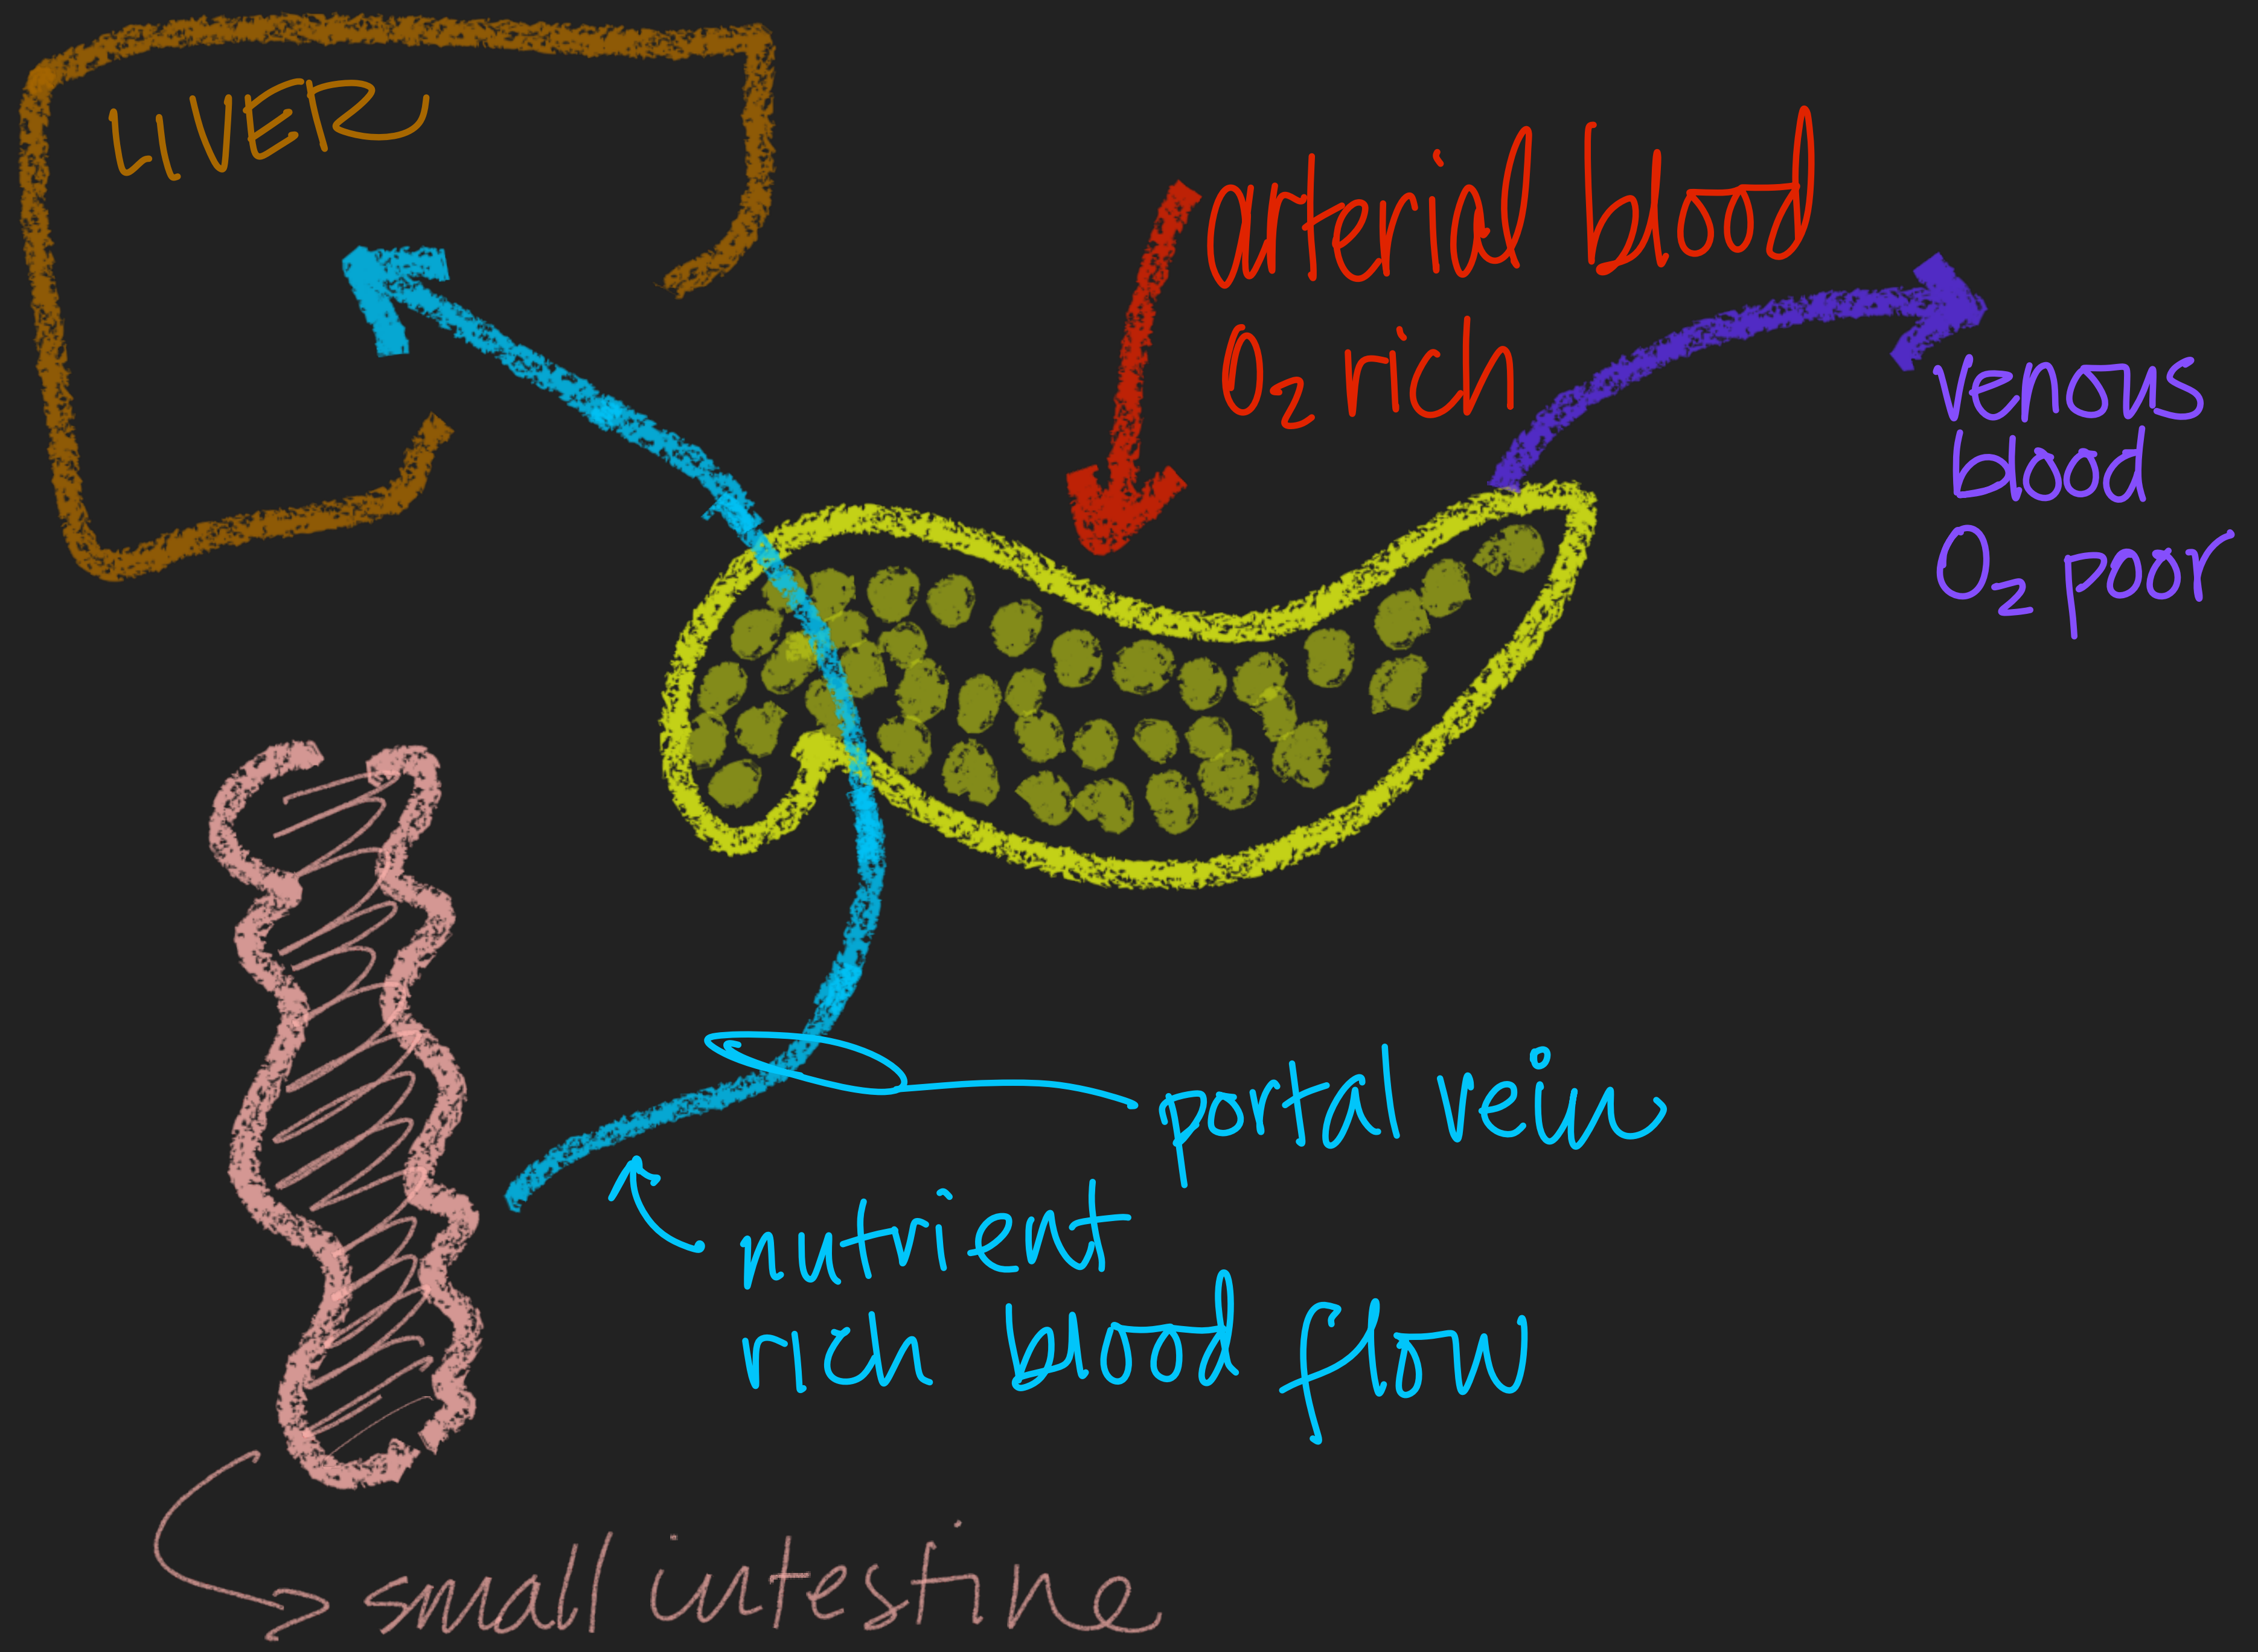 LIVER
arterial blood
O₂ rich
venous
blood
O₂ poor
portal vein
nutrient
rich blood flow
small intestine